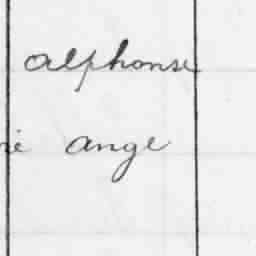 alphonse
ie ange